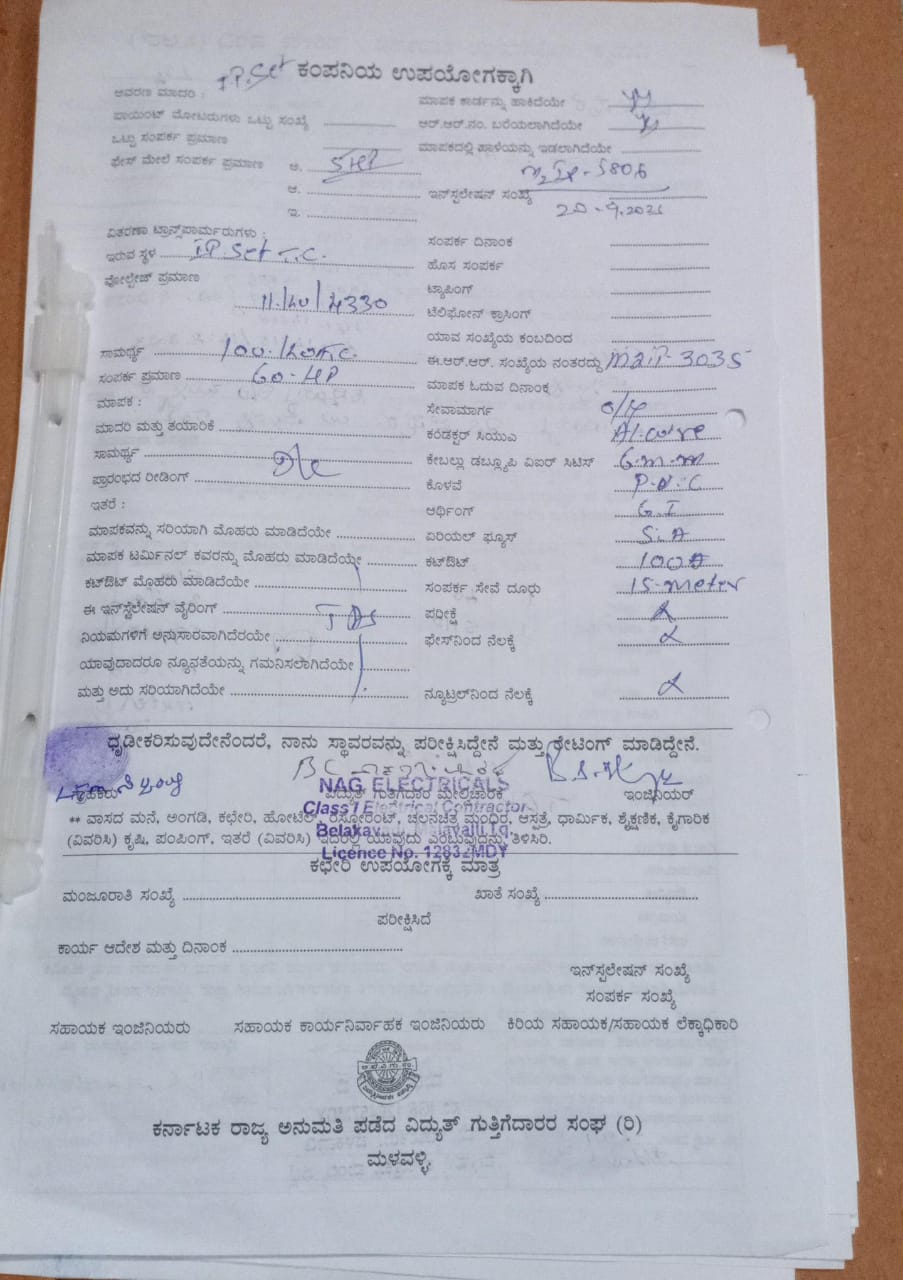 I.P. Set ಕಂಪನಿಯ ಉಪಯೋಗಕ್ಕಾಗಿ
ಆವರಣ ಮಾದರಿ :
ಮಾಪಕ ಕಾರ್ಡನ್ನು ಹಾಕಿದೆಯೇ
ಪಾಯಿಂಟ್ ಮೋಟರುಗಳು ಒಟ್ಟು ಸಂಖ್ಯೆ
ಆರ್.ಆರ್.ನಂ. ಬರೆಯಲಾಗಿದೆಯೇ
ಒಟ್ಟು ಸಂಪರ್ಕ ಪ್ರಮಾಣ
ಮಾಪಕದಲ್ಲಿ ಹಾಳೆಯನ್ನು ಇಡಲಾಗಿದೆಯೇ
ಫೇಸ್ ಮೇಲೆ ಸಂಪರ್ಕ ಪ್ರಮಾಣ ಅ. 5HP
ಆ.
ಇನ್‌ಸ್ಟಲೇಷನ್ ಸಂಖ್ಯೆ
ಇ.
ವಿತರಣಾ ಟ್ರಾನ್ಸ್‌ಪಾರ್ಮರುಗಳು :
ಸಂಪರ್ಕ ದಿನಾಂಕ
ಇರುವ ಸ್ಥಳ I.P. Set T.C.
ಹೊಸ ಸಂಪರ್ಕ
ವೋಲ್ಟೇಜ್ ಪ್ರಮಾಣ
ಟ್ಯಾಪಿಂಗ್
ಟೆಲಿಫೋನ್ ಕ್ರಾಸಿಂಗ್
ಯಾವ ಸಂಖ್ಯೆಯ ಕಂಬದಿಂದ
ಸಾಮರ್ಥ್ಯ
ಈ.ಆರ್.ಆರ್. ಸಂಖ್ಯೆಯ ನಂತರದ್ದು
ಸಂಪರ್ಕ ಪ್ರಮಾಣ 60-HP
ಮಾಪಕ ಓದುವ ದಿನಾಂಕ
ಮಾಪಕ :
ಸೇವಾಮಾರ್ಗ O/H
ಮಾದರಿ ಮತ್ತು ತಯಾರಿಕೆ
ಕಂಡಕ್ಟರ್ ಸಿಯುಎ
ಸಾಮರ್ಥ್ಯ
ಕೇಬಲ್ಲು ಡಬ್ಲ್ಯೂಪಿ ವಿಐರ್ ಸಿಟಿಸ್
ಪ್ರಾರಂಭದ ರೀಡಿಂಗ್
ಕೊಳವೆ P.V.C
ಇತರೆ :
ಆರ್ಥಿಂಗ್ G.I
ಮಾಪಕವನ್ನು ಸರಿಯಾಗಿ ಮೊಹರು ಮಾಡಿದೆಯೇ
ಏರಿಯಲ್ ಫ್ಯೂಸ್
ಮಾಪಕ ಟರ್ಮಿನಲ್ ಕವರನ್ನು ಮೊಹರು ಮಾಡಿದೆಯೇ
ಕಟ್‌ಔಟ್ 100A
ಕಟ್‌ಔಟ್ ಮೊಹರು ಮಾಡಿದೆಯೇ
ಸಂಪರ್ಕ ಸೇವೆ ದೂರು 15-meter
ಈ ಇನ್‌ಸ್ಟಲೇಷನ್ ವೈರಿಂಗ್
ಪರೀಕ್ಷೆ
ನಿಯಮಗಳಿಗೆ ಅನುಸಾರವಾಗಿದೆರಯೇ
ಫೇಸ್‌ನಿಂದ ನೆಲಕ್ಕೆ
ಯಾವುದಾದರೂ ನ್ಯೂನತೆಯನ್ನು ಗಮನಿಸಲಾಗಿದೆಯೇ
ಮತ್ತು ಅದು ಸರಿಯಾಗಿದೆಯೇ
ನ್ಯೂಟ್ರಲ್‌ನಿಂದ ನೆಲಕ್ಕೆ
ಧೃಡೀಕರಿಸುವುದೇನೆಂದರೆ, ನಾನು ಸ್ಥಾವರವನ್ನು ಪರೀಕ್ಷಿಸಿದ್ದೇನೆ ಮತ್ತು ರೇಟಿಂಗ್ ಮಾಡಿದ್ದೇನೆ.
NAG ELECTRICALS
ಗ್ರಾಹಕರು ವಿದ್ಯುತ್ ಗುತ್ತಿಗೆದಾರ ಮೇಲ್ವಿಚಾರಕ ಇಂಜಿನಿಯರ್
Class I Electrical Contractor
** ವಾಸದ ಮನೆ, ಅಂಗಡಿ, ಕಛೇರಿ, ಹೋಟೆಲ್, ರೆಸ್ಟೋರೆಂಟ್, ಚಲನಚಿತ್ರ ಮಂದಿರ, ಆಸ್ಪತ್ರೆ, ಧಾರ್ಮಿಕ, ಶೈಕ್ಷಣಿಕ, ಕೈಗಾರಿಕ
Malavalli Tq.
(ವಿವರಿಸಿ) ಕೃಷಿ, ಪಂಪಿಂಗ್, ಇತರೆ (ವಿವರಿಸಿ) ಇದರಲ್ಲಿ ಯಾವುದು ಎಂಬುವುದನ್ನು ತಿಳಿಸಿರಿ.
Licence No. 12832MDY
ಕಛೇರಿ ಉಪಯೋಗಕ್ಕೆ ಮಾತ್ರ
ಮಂಜೂರಾತಿ ಸಂಖ್ಯೆ ಖಾತೆ ಸಂಖ್ಯೆ
ಪರೀಕ್ಷಿಸಿದೆ
ಕಾರ್ಯ ಆದೇಶ ಮತ್ತು ದಿನಾಂಕ
ಇನ್‌ಸ್ಪಲೇಷನ್ ಸಂಖ್ಯೆ
ಸಂಪರ್ಕ ಸಂಖ್ಯೆ
ಸಹಾಯಕ ಇಂಜಿನಿಯರು ಸಹಾಯಕ ಕಾರ್ಯನಿರ್ವಾಹಕ ಇಂಜಿನಿಯರು ಕಿರಿಯ ಸಹಾಯಕ/ಸಹಾಯಕ ಲೆಕ್ಕಾಧಿಕಾರಿ
ಕರ್ನಾಟಕ ರಾಜ್ಯ ಅನುಮತಿ ಪಡೆದ ವಿದ್ಯುತ್ ಗುತ್ತಿಗೆದಾರರ ಸಂಘ (ರಿ)
ಮಳವಳ್ಳಿ.